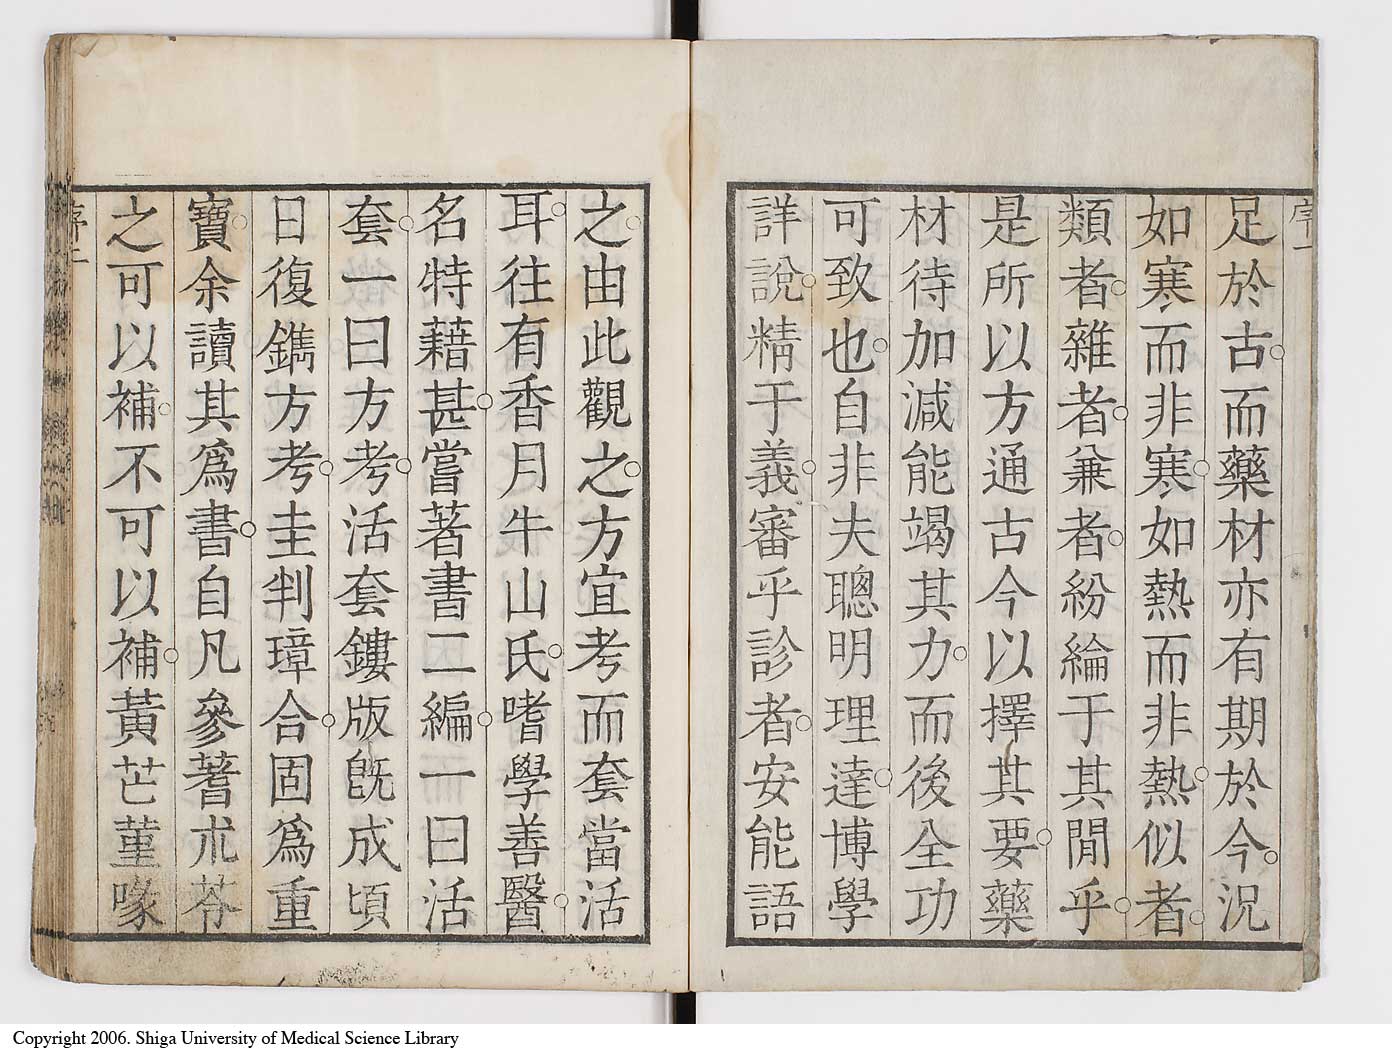 序一
足於古而藥材亦有期於今況
如寒而非寒如熱而非熱似者
類者雜者兼者紛綸于其閒乎
是所以方通古今以擇其要藥
材待加減能竭其力而後全功
可致也自非夫聰明理達博學
詳說精于義審乎診者安能語
之由此觀之方宜考而套當活
耳往有香月牛山氏嗜學善醫
名特藉甚嘗著書二編一曰活
套一曰方考活套鏤版旣成頃
日復鐫方考圭判璋合固爲重
寶余讀其爲書自凡參蓍朮苓
之可以補不可以補黃芒菫喙
序二
Copyright 2006. Shiga University of Medical Science Library